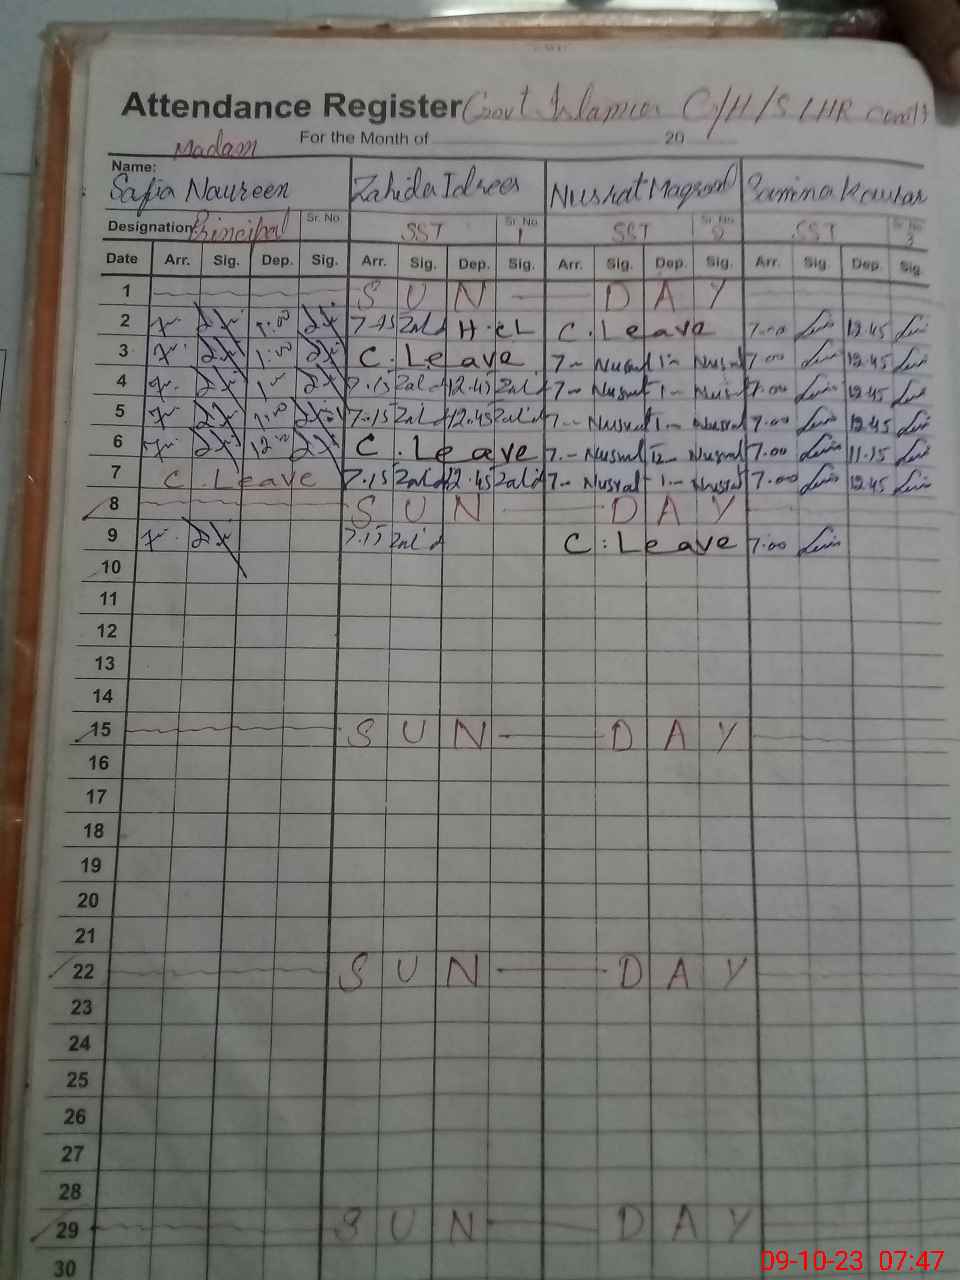 Attendance Register Govt Islamia G/H/S LHR cantt
For the Month of 20
Madam
Name: Safia Naureen Zahida Idrees Nushat Maqsood Samina Kausar
Designation Principal Sr. No SST Sr. No 1 SST Sr. No 2 SST Sr. No 3
Date Arr. Sig. Dep. Sig. Arr. Sig. Dep. Sig. Arr. Sig. Dep. Sig. Arr. Sig. Dep. Sig.
1 S U N D A Y
2 1:00 7-15 Zalid H.CL C.Leave 7.00 12.45
3 1:00 C.Leave 7- Nusrat 1- Nusrat 7.00 12.45
4 7.15 Zalid 12.45 Zalid 7- Nusrat 1- Nusrat 7.00 12.45
5 1:00 7.15 Zalid 12.45 Zalid 7- Nusrat 1- Nusrat 7.00 12.45
6 C.Leave 7- Nusrat 12- Nusrat 7.00 11.15
7 C.Leave 7.15 Zalid 12.45 Zalid 7- Nusrat 1- Nusrat 7.00 12.45
8 S U N D A Y
9 7.15 Zalid C:Leave 7:00
10
11
12
13
14
15 S U N D A Y
16
17
18
19
20
21
22 S U N D A Y
23
24
25
26
27
28
29 S U N D A Y
30
09-10-23 07:47